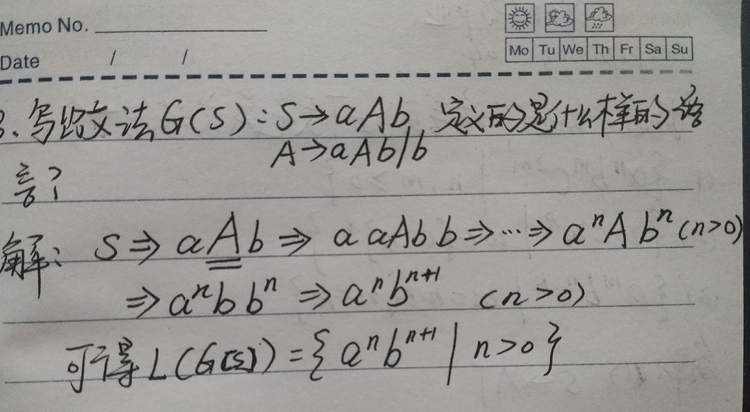 Memo No.
Date / /
Mo Tu We Th Fr Sa Su
3. 写出文法G(S): S→aAb 定义的是什么样的语
A→aAb|b
言?
解: S ⇒ aAb ⇒ aaAbb ⇒ … ⇒ aⁿAbⁿ (n>0)
⇒ aⁿbbⁿ ⇒ aⁿbⁿ⁺¹ (n>0)
可得 L(G[S]) = {aⁿbⁿ⁺¹ | n>0}